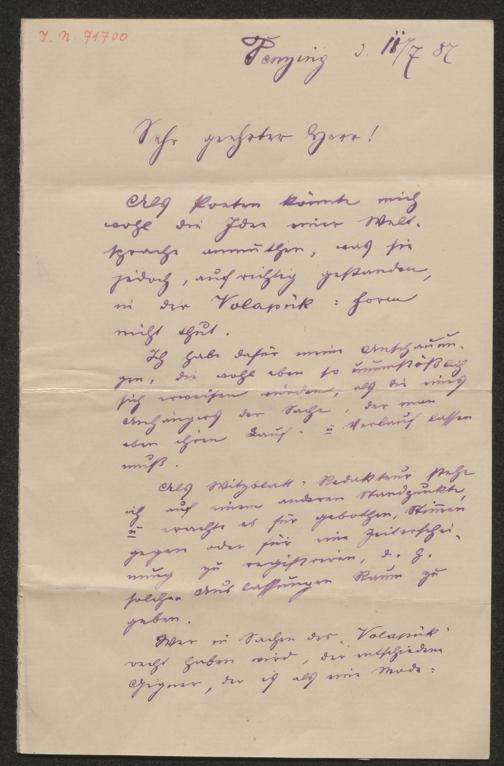 I. N. 71700
Penzing d. 11/7 87
Sehr geehrter Herr!
Als Poeten könnte mich
wohl die Idee einer Welt-
sprache anmuthen, was sie
jedoch, aufrichtig gestanden,
in der Volapük-form
nicht thut.
Ich habe dafür meine Anschauun-
gen, die wohl eben so unumstößlich
sich erweisen würden, als die eines
Anhängers der Sache, der man
eben ihren Lauf- u Verlauf lassen
muß.
Als Witzblatt-Redakteur stehe
ich auf einem anderen Standpunkte,
u erachte es für gebothen, Stimen
gegen oder für eine Zeiterschei-
nung zu registriren, d. h.
solchen Auslassungen Raum zu
geben.
Wer in Sachen des "Volapük"
recht haben wird, der entschiedene
Gegner, der es als eine Mode-